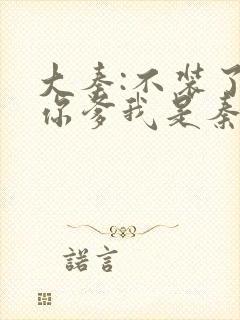 大秦:不装了
你爹我是秦
諾言